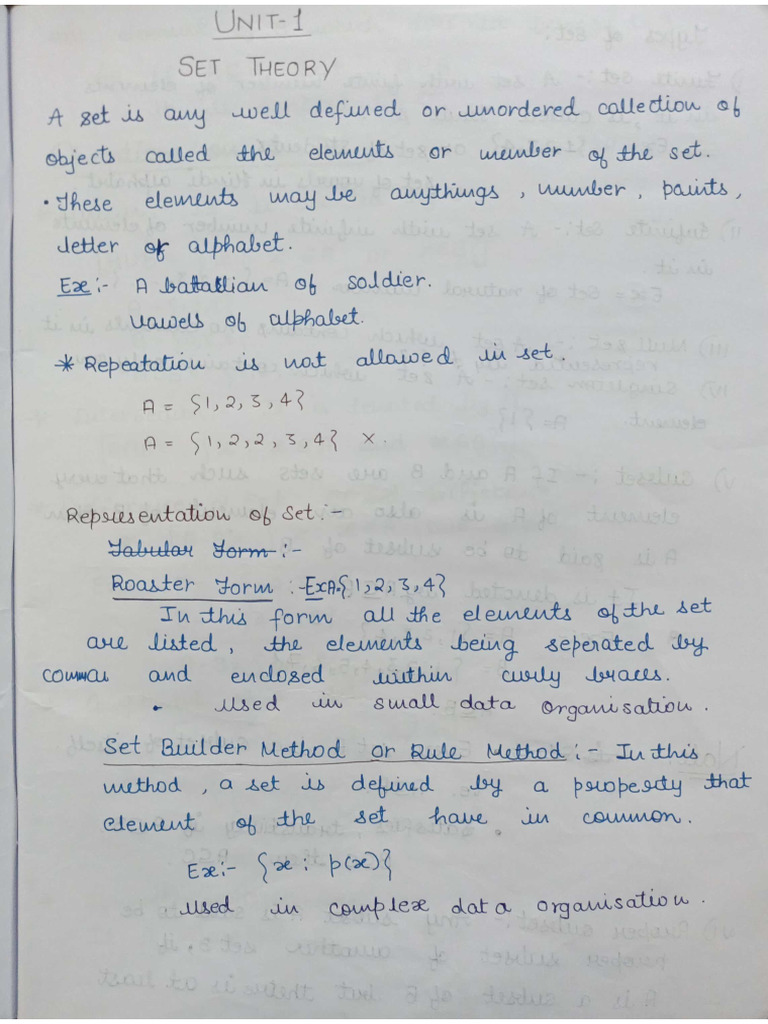 UNIT-1
SET THEORY
A set is any well defined or unordered collection of
objects called the elements or member of the set.
• These elements may be anythings, number, paints,
letter of alphabet.
Ex:- A battalian of soldier.
vowels of alphabet.
* Repeatation is not allowed in set.
A = {1, 2, 3, 4}
A = {1, 2, 2, 3, 4} ×.
Representation of set :-
Tabular Form :-
Roaster Form :- Ex A={1, 2, 3, 4}
In this form all the elements of the set
are listed, the elements being seperated by
commas and enclosed within curly braces.
• Used in small data organisation.
Set Builder Method or Rule Method :- In this
method, a set is defined by a property that
element of the set have in common.
Ex:- {x : p(x)}
Used in complex data organisation.